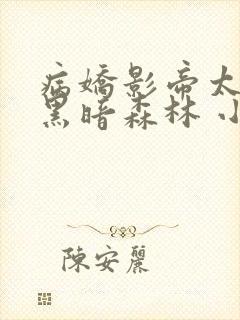 病嬌影帝太
黑暗森林 小
陳安麗